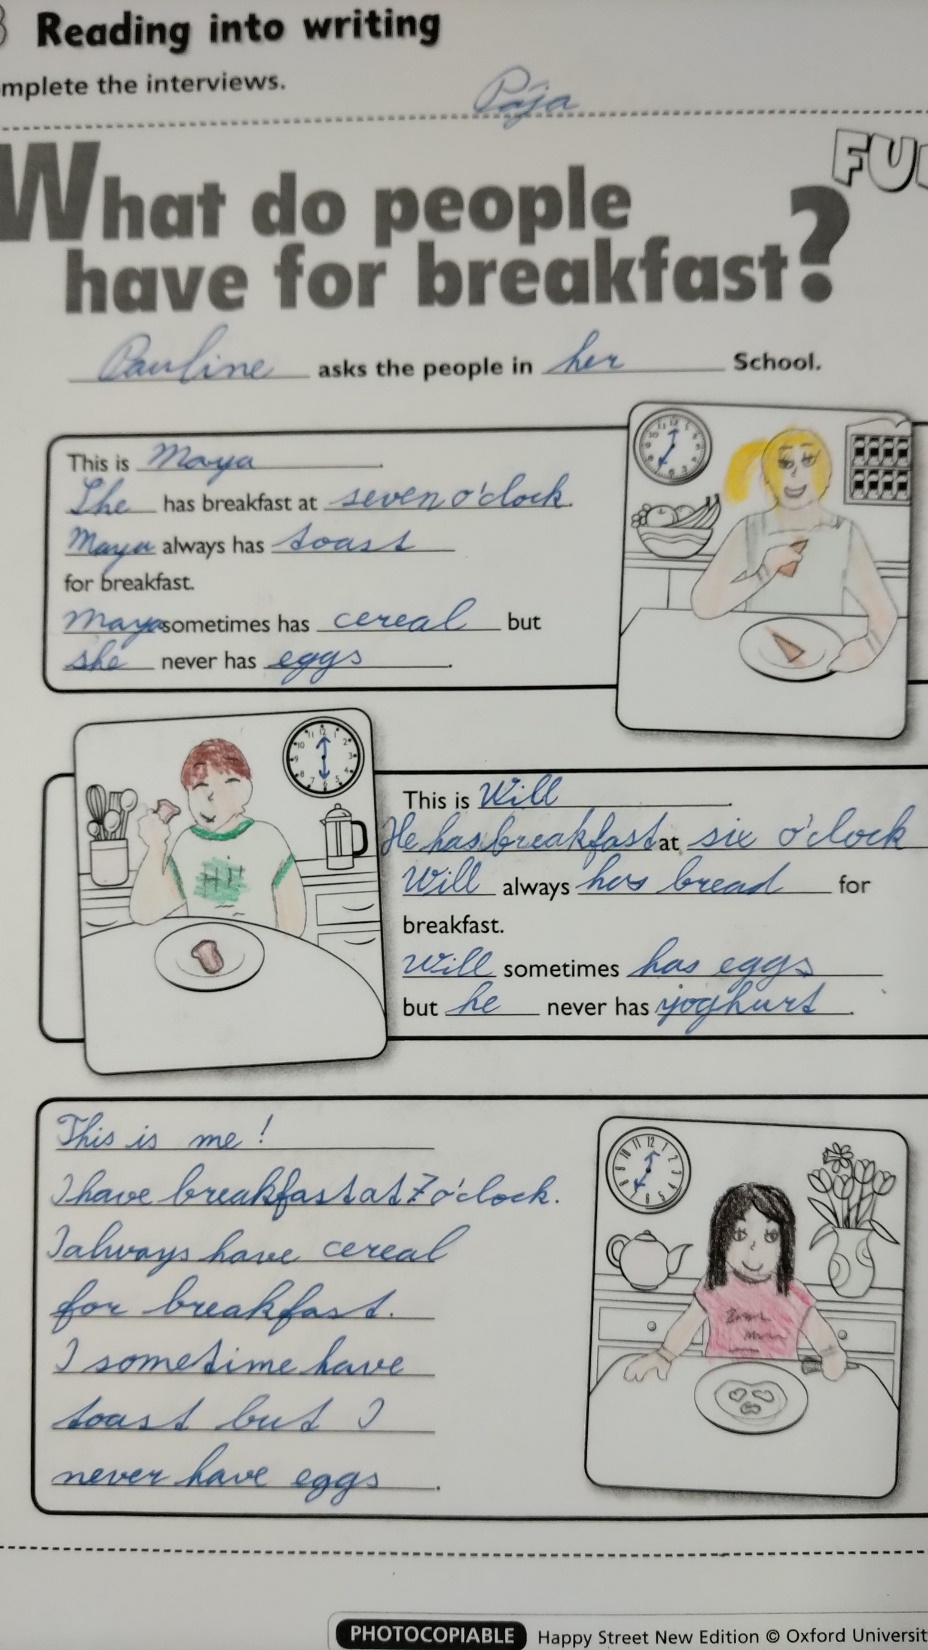 Reading into writing
mplete the interviews.
Pája
What do people
have for breakfast?
FU
Pauline asks the people in her School.
This is Maya.
She has breakfast at seven o'clock.
Maya always has toast
for breakfast.
Maya sometimes has cereal but
she never has eggs.
This is Will.
He has breakfast at six o'clock
Will always has bread for
breakfast.
Will sometimes has eggs
but he never has yoghurt.
HI!
This is me!
I have breakfast at 7 o'clock.
I always have cereal
for breakfast.
I sometime have
toast but I
never have eggs.
PHOTOCOPIABLE Happy Street New Edition © Oxford Universit